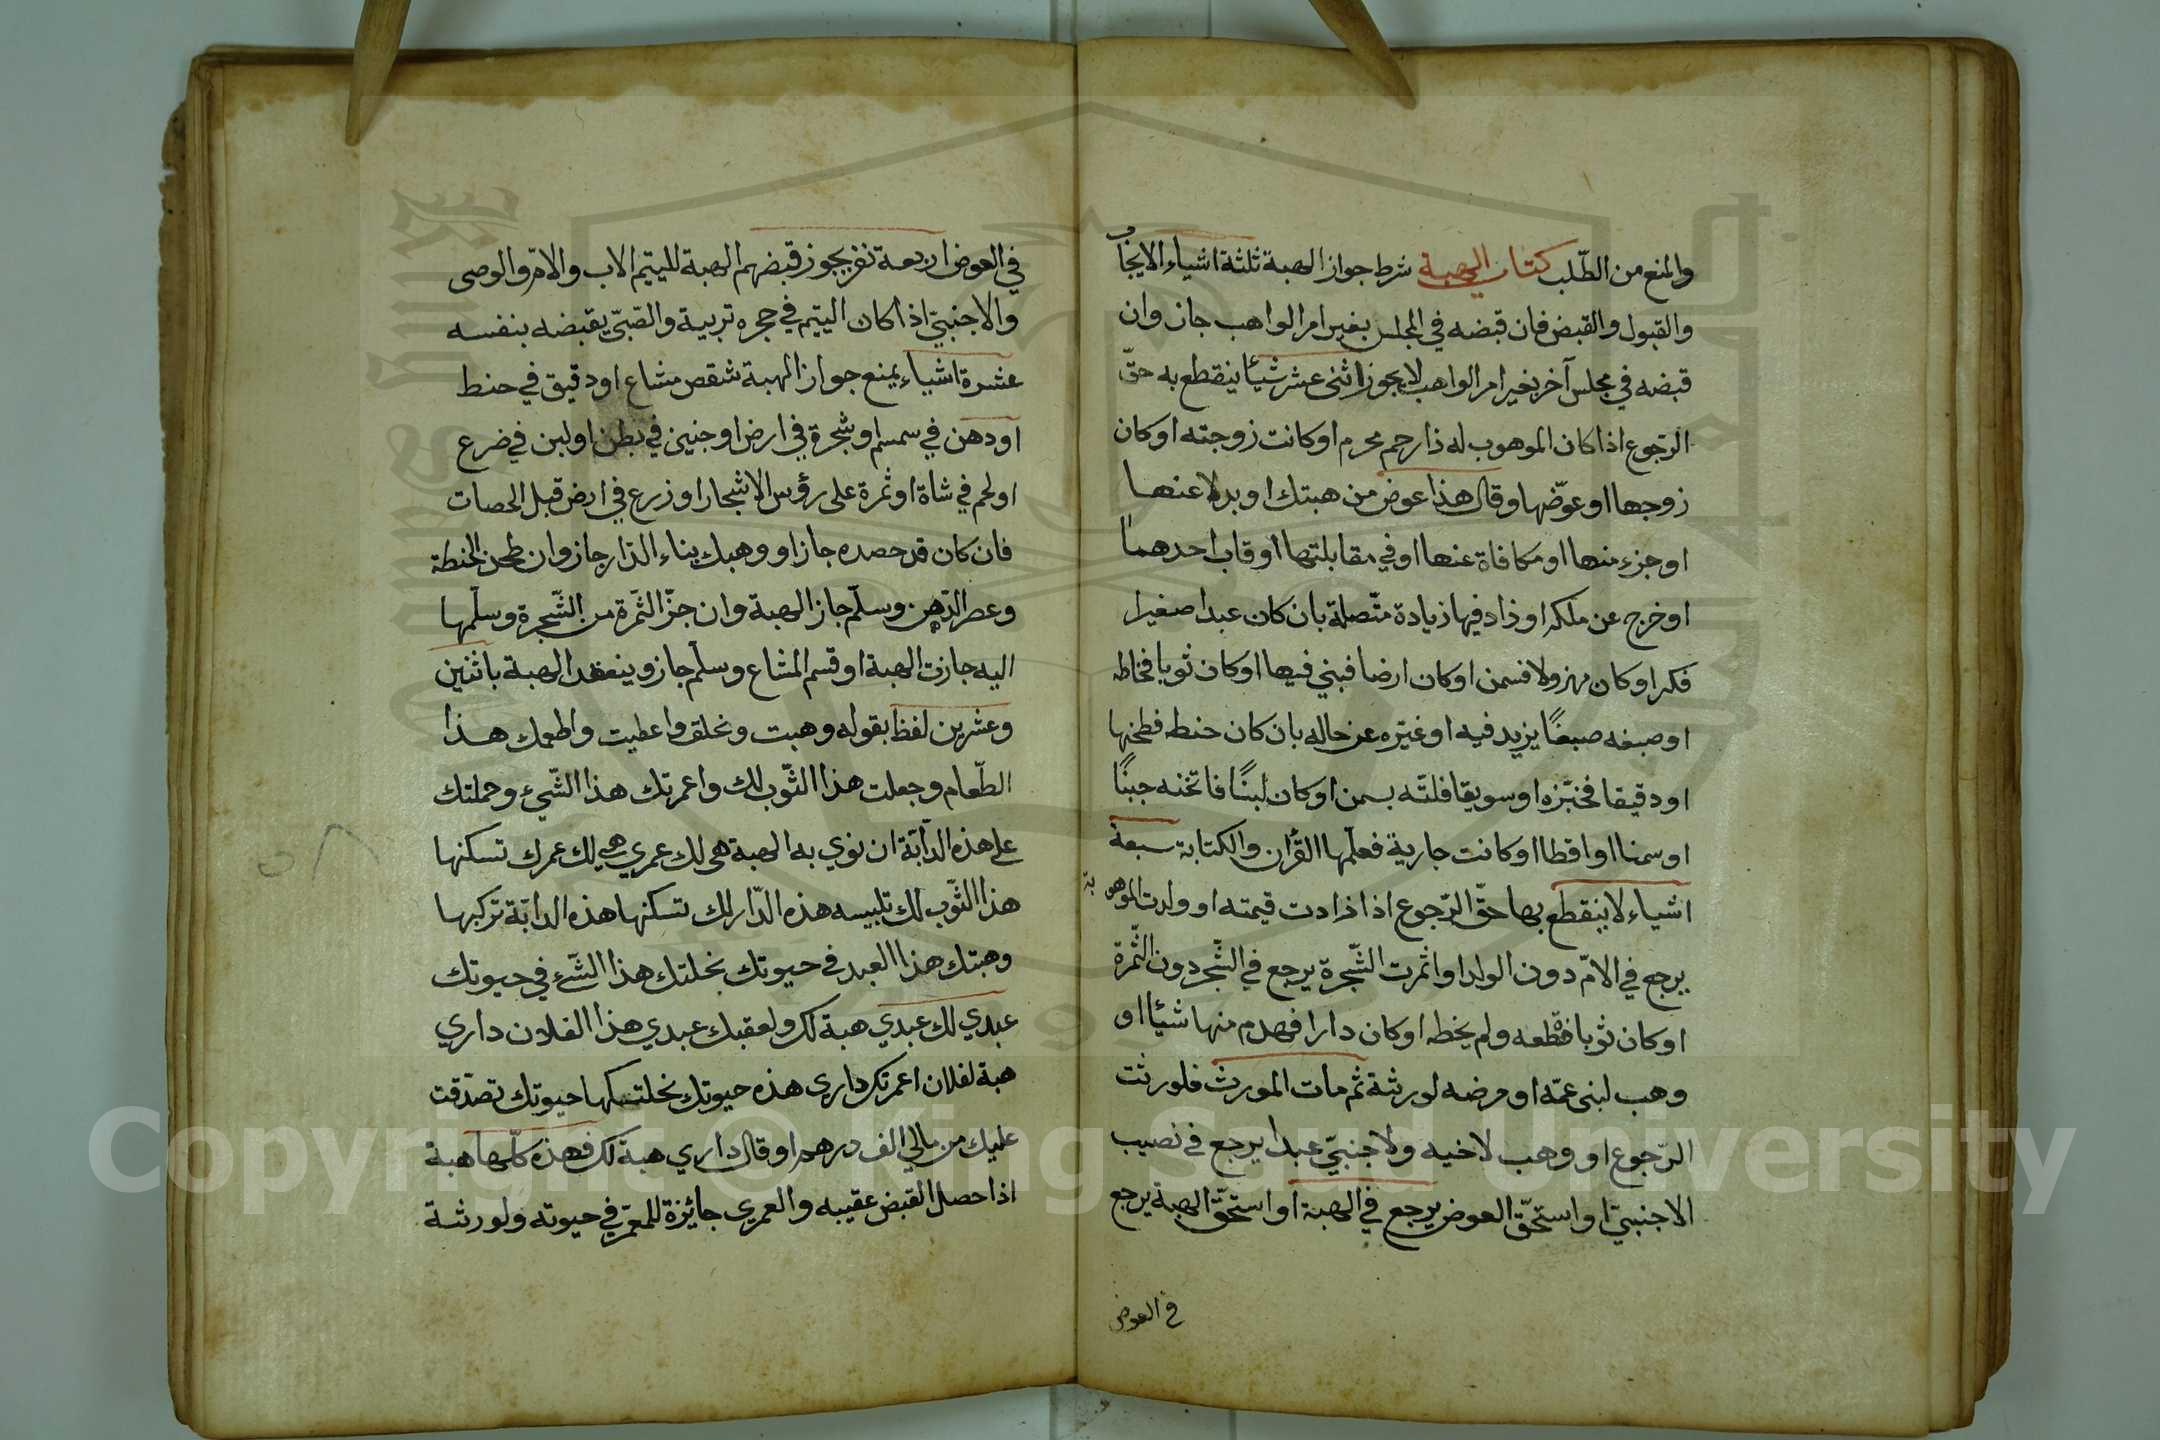 والمنع من الطّلب كتاب الهبة شرط جواز الهبة ثلثة اشياء الايجاب
والقبول والقبض فان قبضه في المجلس بغير امر الواهب جاز وان
قبضه في مجلس آخر بغير امر الواهب لا يجوز اثنى عشر شيأ ينقطع به حقّ
الرّجوع اذا كان الموهوب له ذا رحم محرم او كانت زوجته او كان
زوجها او عوّضها وقال هذا عوض من هبتك او بدلا عنها
او جزء منها او مكافاة عنها او في مقابلتها او قاب احدهما
او خرج عن ملكه او زاد فيها زيادة متّصلة بان كان عبدا صغيرا
فكبر او كان مهزولا فسمن او كان ارضا فبني فيها او كان ثوبا فخاطه
او صبغه صبغًا يزيد فيه او غيّره عن حاله بان كان حنطه فطحنها
او دقيقا فخبّزه او سويقا فلتّه بسمن او كان لبنًا فاتخذه جبنًا
او سمنا او اقطا او كانت جارية فعلّمها القرأن والكتابة سبعة
اشياء لا ينقطع بها حقّ الرّجوع اذا زادت قيمته او ولدت الموهو بة
يرجع في الامّ دون الولد او اثمرت الشّجرة يرجع في الشّجر دون الثّمرة
او كان ثوبا فقطعه ولم يخطه او كان دارا فهدم منها شيأ او
وهب لبنى عمّه او مرضه لورثة ثم مات المورث فلورثت
الرّجوع او وهب لاخيه ولاجنبيّ عبدا يرجع في نصيب
الاجنبيّ او استحقّ العوض يرجع في الهبة او استحقّ الهبة يرجع
في العوض
في العوض اربعة نفر يجوز قبضهم الهبة لليتيم الاب والامّ والوصى
والاجنبيّ اذا كان اليتيم في حجره تربية والصّبيّ يقبضه بنفسه
عشرة اشياء يمنع جواز الهبة شقص مشاع او دقيق في حنط
او دهن في سمسم او شجرة في ارض او جنين في بطن او لبن في ضرع
او لحم في شاة او ثمرة على رؤس الاشجار او زرع في ارض قبل الحصات
فان كان قد حصده جاز او وهبك بناء الدّار جاز وان طحن الحنطة
وعصر الدّهن وسلّم جاز الهبة وان جزّ الثّمرة من الشّجرة وسلّمها
اليه جازت الهبة او قسم المشاع وسلّم جاز وينعقد الهبة باثنين
وعشرين لفظا بقوله وهبت ونحلق واعطيت واطعمك هذا
الطّعام وجعلت هذا الثّوب لك واعمرتك هذا الشّيء وحملتك
على هذه الدّابّة ان نوي به الهبة هى لك عمري هي لك عمرك تسكنها
هذا الثّوب لك تلبسه هذه الدّار لك تسكنها هذه الدابّة تركبها
وهبتك هذا العبد في حيوتك نحلتك هذا الشّيء في حيوتك
عبدي لك عبدي هبة لك ولعقبك عبدي هذا الفلان داري
هبة لفلان اعمرتك داري هذه حيوتك نحلتسكها حيوتك تصدّقت
عليك من مالي الف درهم او قال داري هبة لك فهذه كلّها هبة
اذا حصل القبض عقيبه والعمرى جائزة للمعمّر في حيوته ولورثة
Copyright © King Saud University